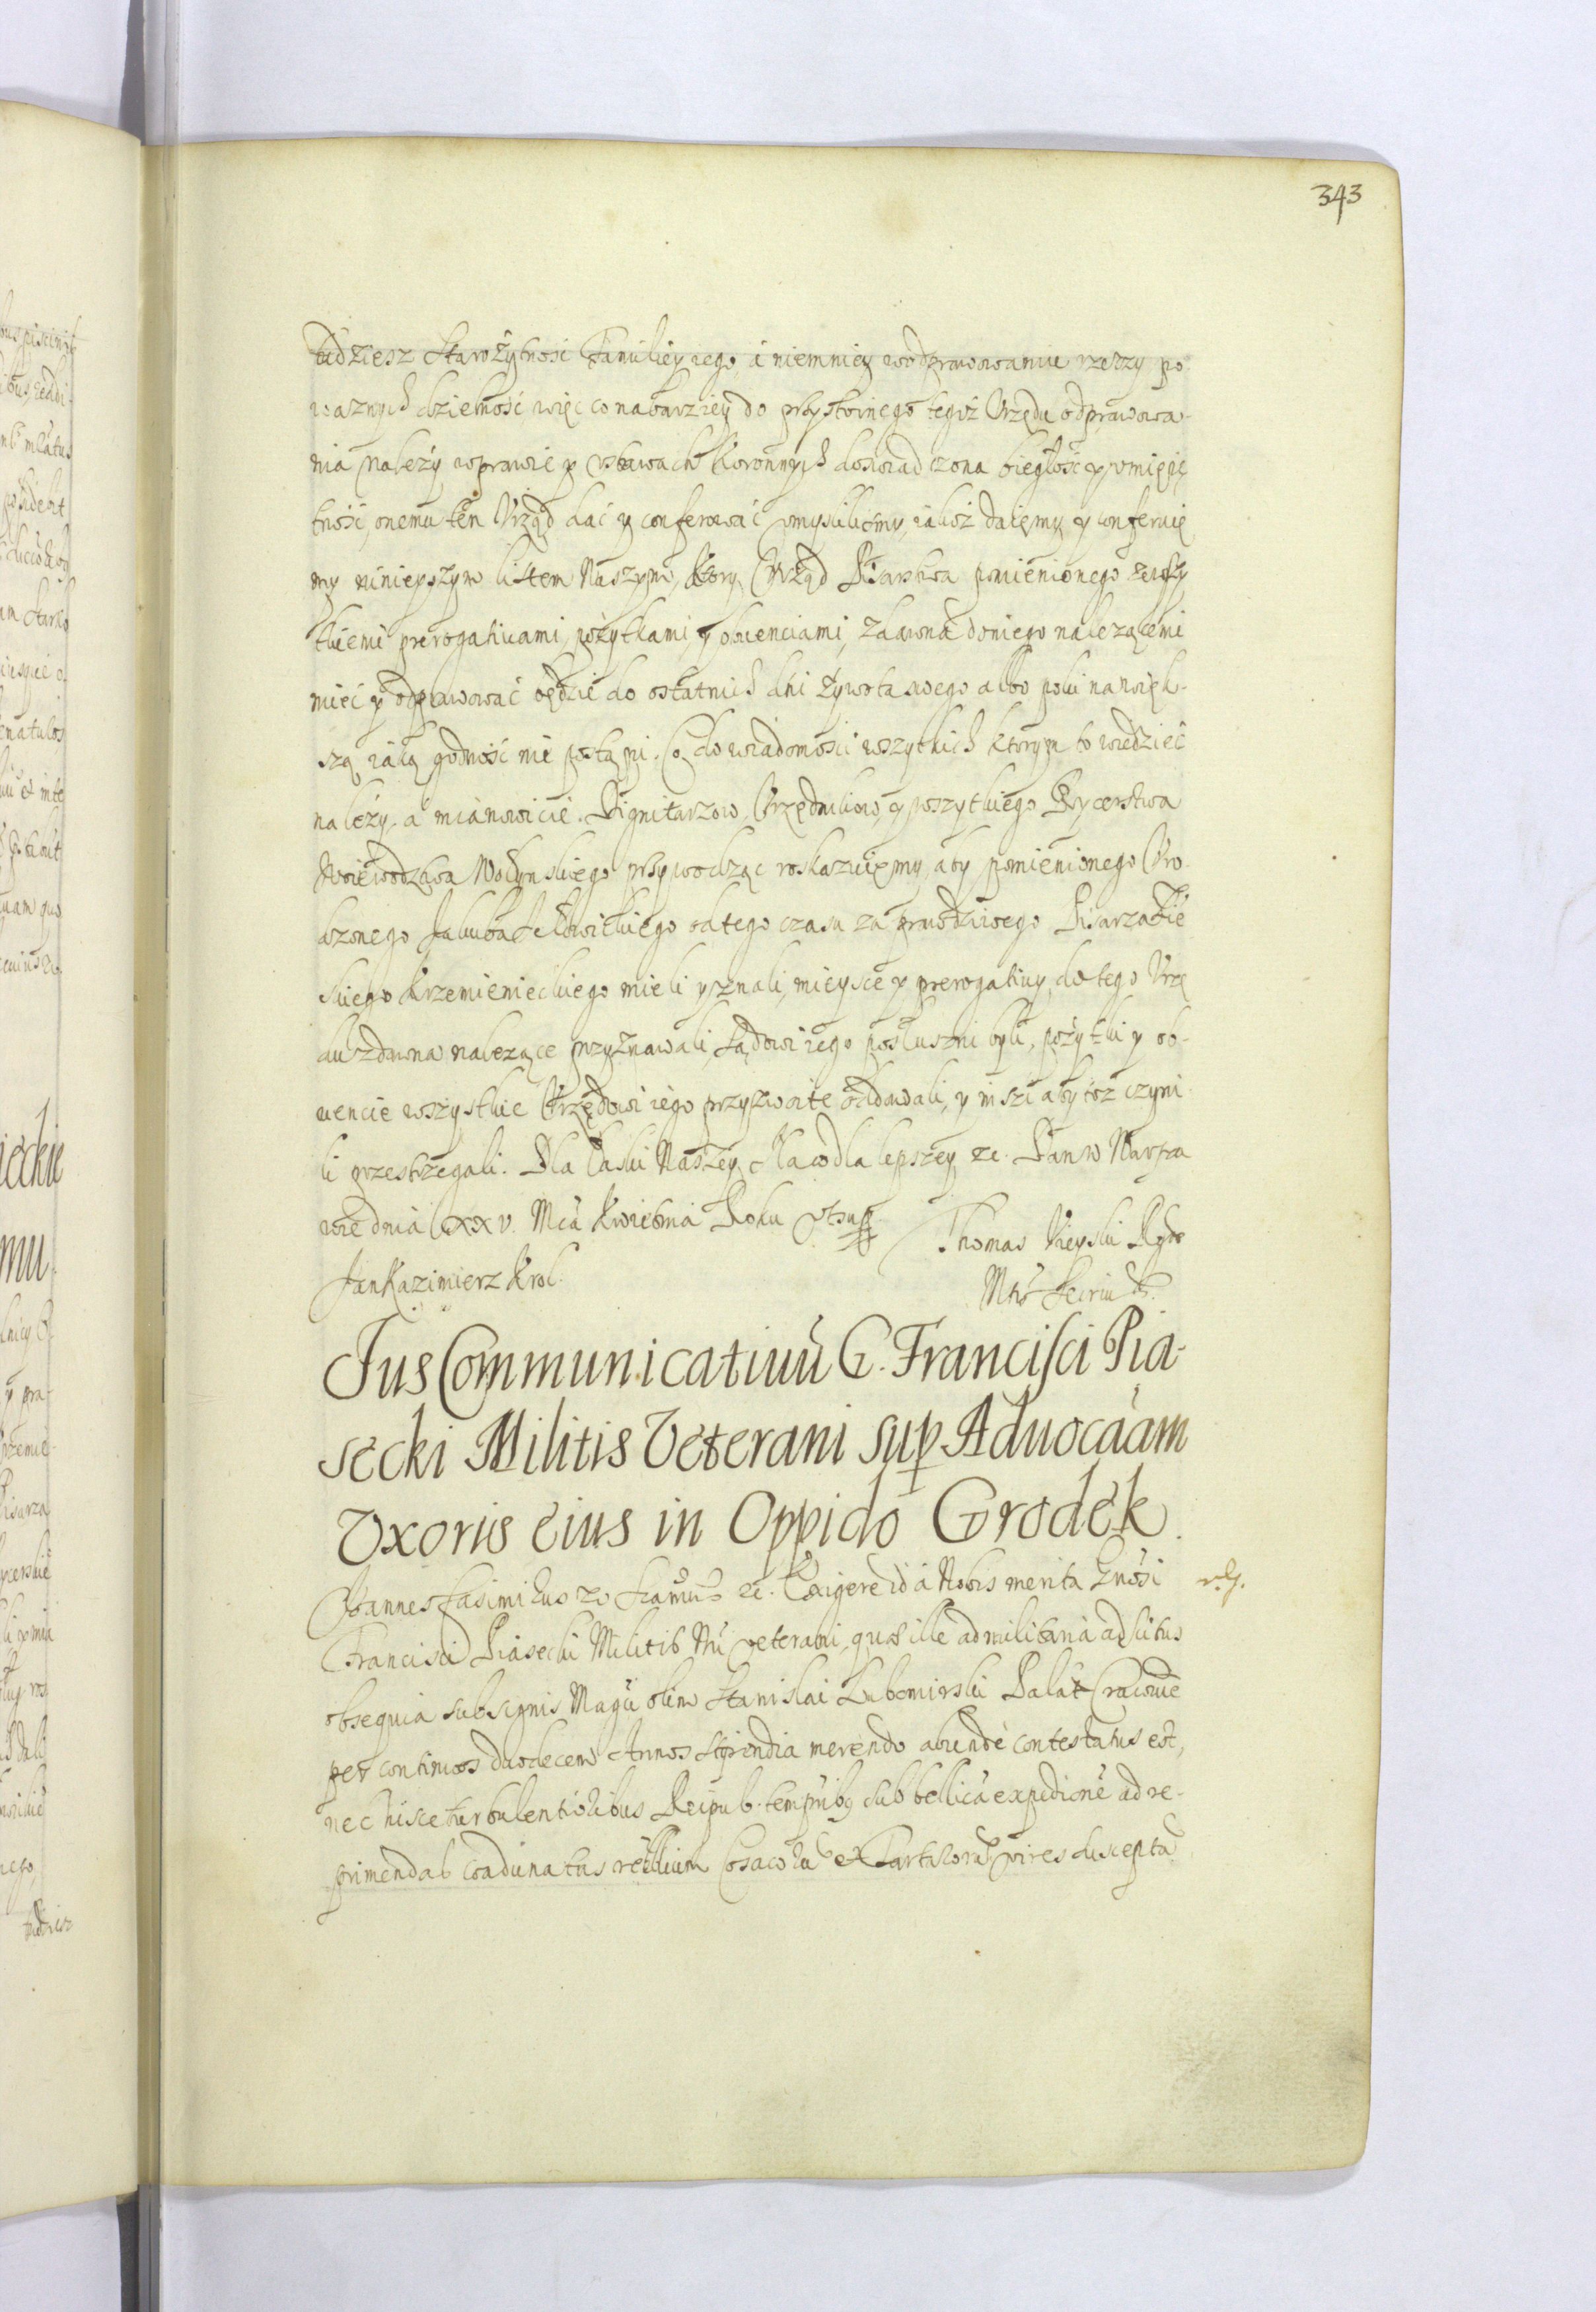 343
tudziesz Starożytnosc Familiey iego, a niemniey wodprawowaniu rzeczy po-
waznych dzielność, więc co nabarziey do przystoinego tegoż Vrzędu odprawowa-
nia należy, wprawie y vstawach koronnych doswiadczona biegłość y vmieię
tność, onemu ten Vrząd dać y conferować vmysliliśmy, iakoż daięmy y conferuię
my ninieyszym listem Naszym, Który Vrząd Pisarstwa pomienionego ze wszy
tkiemi prerogatiuami, pożytkami, y obuenciami, zdawna doniego należącemi
mieć y odprawować będzie do ostatnich dni żywota swego albo poki nawięk-
szą iaką godność nie postąpi. Co do wiadomości wszytkich ktorym to wiedzieć
należy, a mianowicie. Dignitarzow, Vrzędnikow, y wszytkiego Rycerstwa
Woiewodztwa Wołynskiego przywodząc roskazuięmy, aby pomienionego Vro-
dzonego Jakuba Jełowickiego odtego czasu za prawdziwego Pisarza Zie
skiego Krzemienieckiego mieli y znali, mieysce y prerogatiuy, do tego Vrzę
du zdawna należące przyznawali, Sądowi iego posłuszni byli, pożytki y ob-
uencie wszystkie Vrzędowi iego przyzwoite oddawali, y inszi aby toż czyni-
li przestrzegali. Dla łaski Naszey. Na co dla lepszey etc. Dan w Warsza
wie dnia XXV. Mca Kwietnia Roku vtsup
Thomas Vieyski Rgs
Jan Kazimierz Krol.
Mtis Secriu
Jus Communicatiuũ G. Francisci Pia-
secki Militis Veterani sup Aduocãam
Vxoris eius in Oppido Grodek.
Joannes Casimirus etc. Exigere id a Nobis merita Gnosi
r. g.
Francisci Piasecki Militis Nri veterani, quod ille ad militaria adscitus
obsequia sub signis Magci olim Stanislai Lubomirski Palat Cracouie
per continuos duodecem Annos stipendia merendo abunde contestatus est,
nec hisce turbulentioribus Reipub. tempribq sub bellica expedione ad re-
primendas coadunatas rebellium Cosacoru et Tartaroru vires suscepta